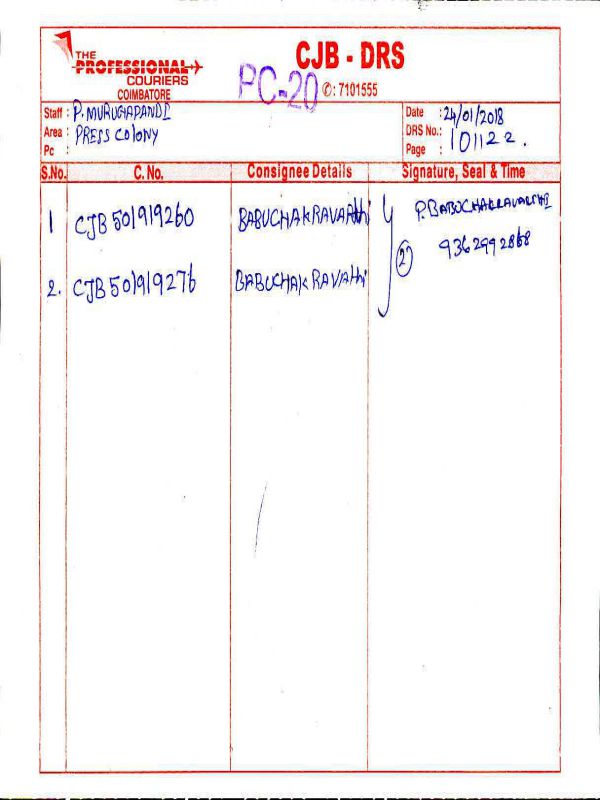 THE
PROFESSIONAL
COURIERS
COIMBATORE
CJB - DRS
PC-20
✆: 7101555
Staff : P. MURUGAPANDI
Area : PRESS COLONY
Pc :
Date : 24/01/2018
DRS No.: 101122.
Page :
S.No. C. No. Consignee Details Signature, Seal & Time
1 CJB 501919260 BABUCHAKRAVARthi P. BABUCHAKRAVARTHI
(2) 9362992868
2. CJB 501919276 BABUCHAKRAVAthi